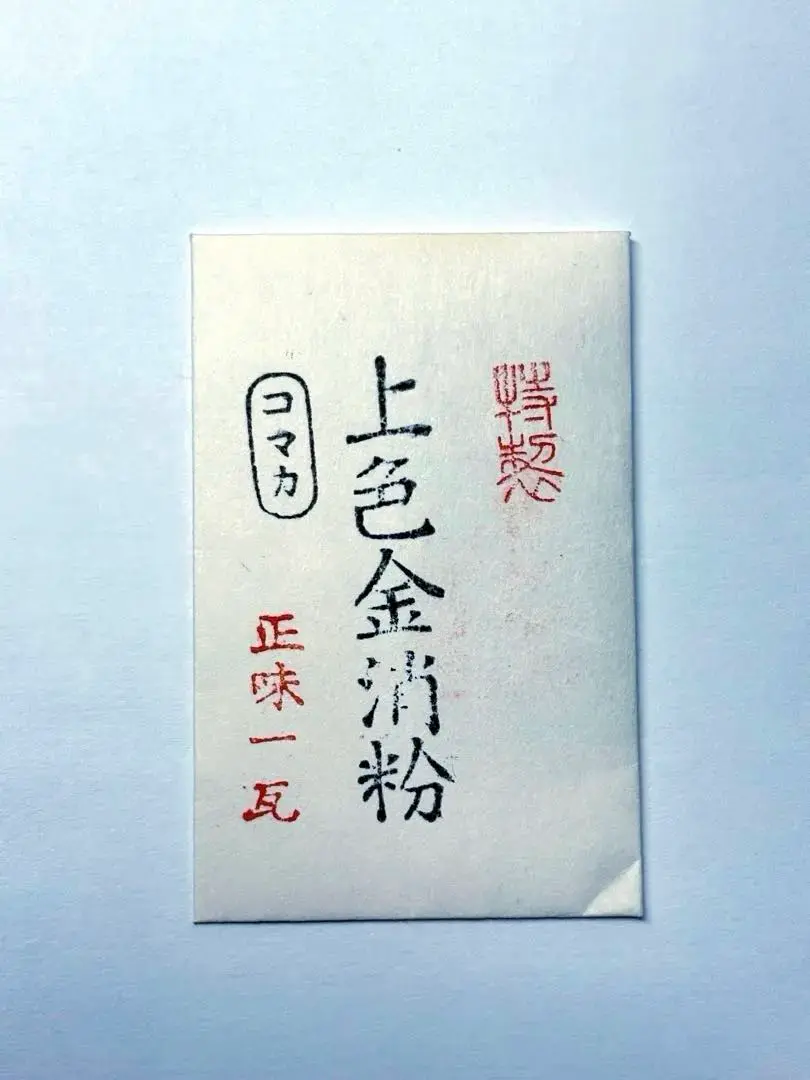 特製
上色金消粉
コマカ
正味一瓦